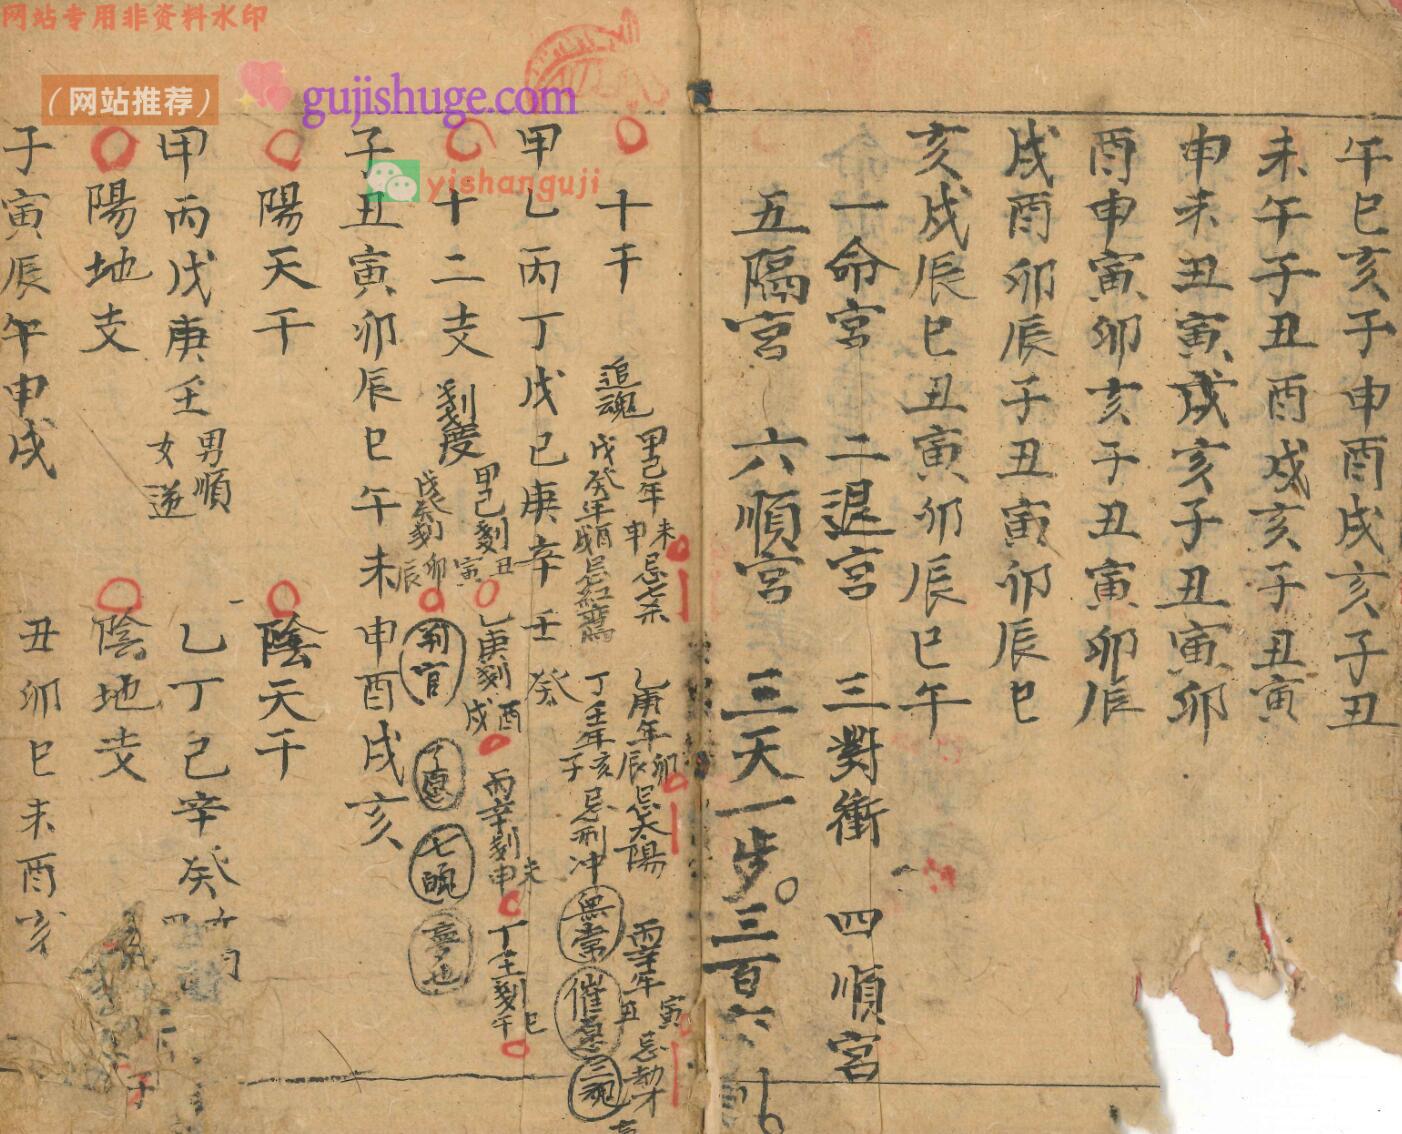 网站专用非资料水印
（网站推荐）
gujishuge.com
yishanguji
午巳亥子申酉戌亥子丑
未午子丑酉戌亥子丑寅
申未丑寅戌亥子丑寅卯
酉申寅卯亥子丑寅卯辰
戌酉卯辰子丑寅卯辰巳
亥戌辰巳丑寅卯辰巳午
一命宮 二退宮 三對衝 四順宮
五隔宮 六順宮 三天一步。三百六
十干
追魂
甲己年未申忌七杀
乙庚年卯辰忌太陽
丙辛年寅丑忌劫才
戊癸年酉戌忌紅鸾
丁壬年亥子忌刑冲
無常
催
三魂
甲乙丙丁戊己庚辛壬癸
十二支
刻度
甲己刻丑寅
乙庚刻酉戌
丙辛刻未申
丁壬刻巳午
戊癸刻卯辰
判官
七魄
子丑寅卯辰巳午未申酉戌亥
陽天干
陰天干
甲丙戊庚壬
男順
女逆
乙丁己辛癸
陽地支
陰地支
子寅辰午申戌
丑卯巳未酉亥